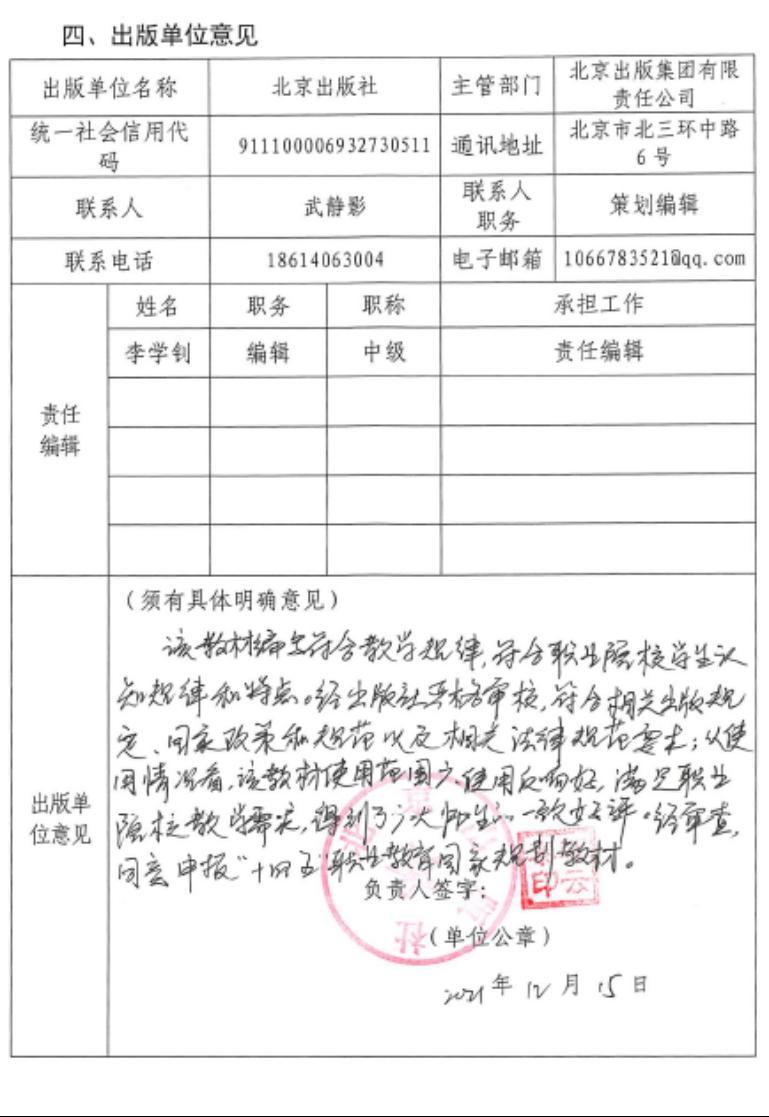 四、出版单位意见
出版单位名称 北京出版社 主管部门 北京出版集团有限
责任公司
统一社会信用代
码 911100006932730511 通讯地址 北京市北三环中路
6号
联系人 武静影 联系人
职务 策划编辑
联系电话 18614063004 电子邮箱 1066783521@qq.com
责任
编辑
姓名 职务 职称 承担工作
李学钊 编辑 中级 责任编辑
出版单
位意见
(须有具体明确意见)
该教材编写符合教学规律,符合职业院校学生认
知规律和特点。经出版社严格审核,符合相关出版规
定、国家政策和规范以及相关法律规范要求;从使
用情况看,该教材使用范围广使用反响好,满足职业
院校教学需求,得到了广大师生的一致好评。经审查,
同意申报“十四五”职业教育国家规划教材。
负责人签字:
印云
(单位公章)
2021年12月15日